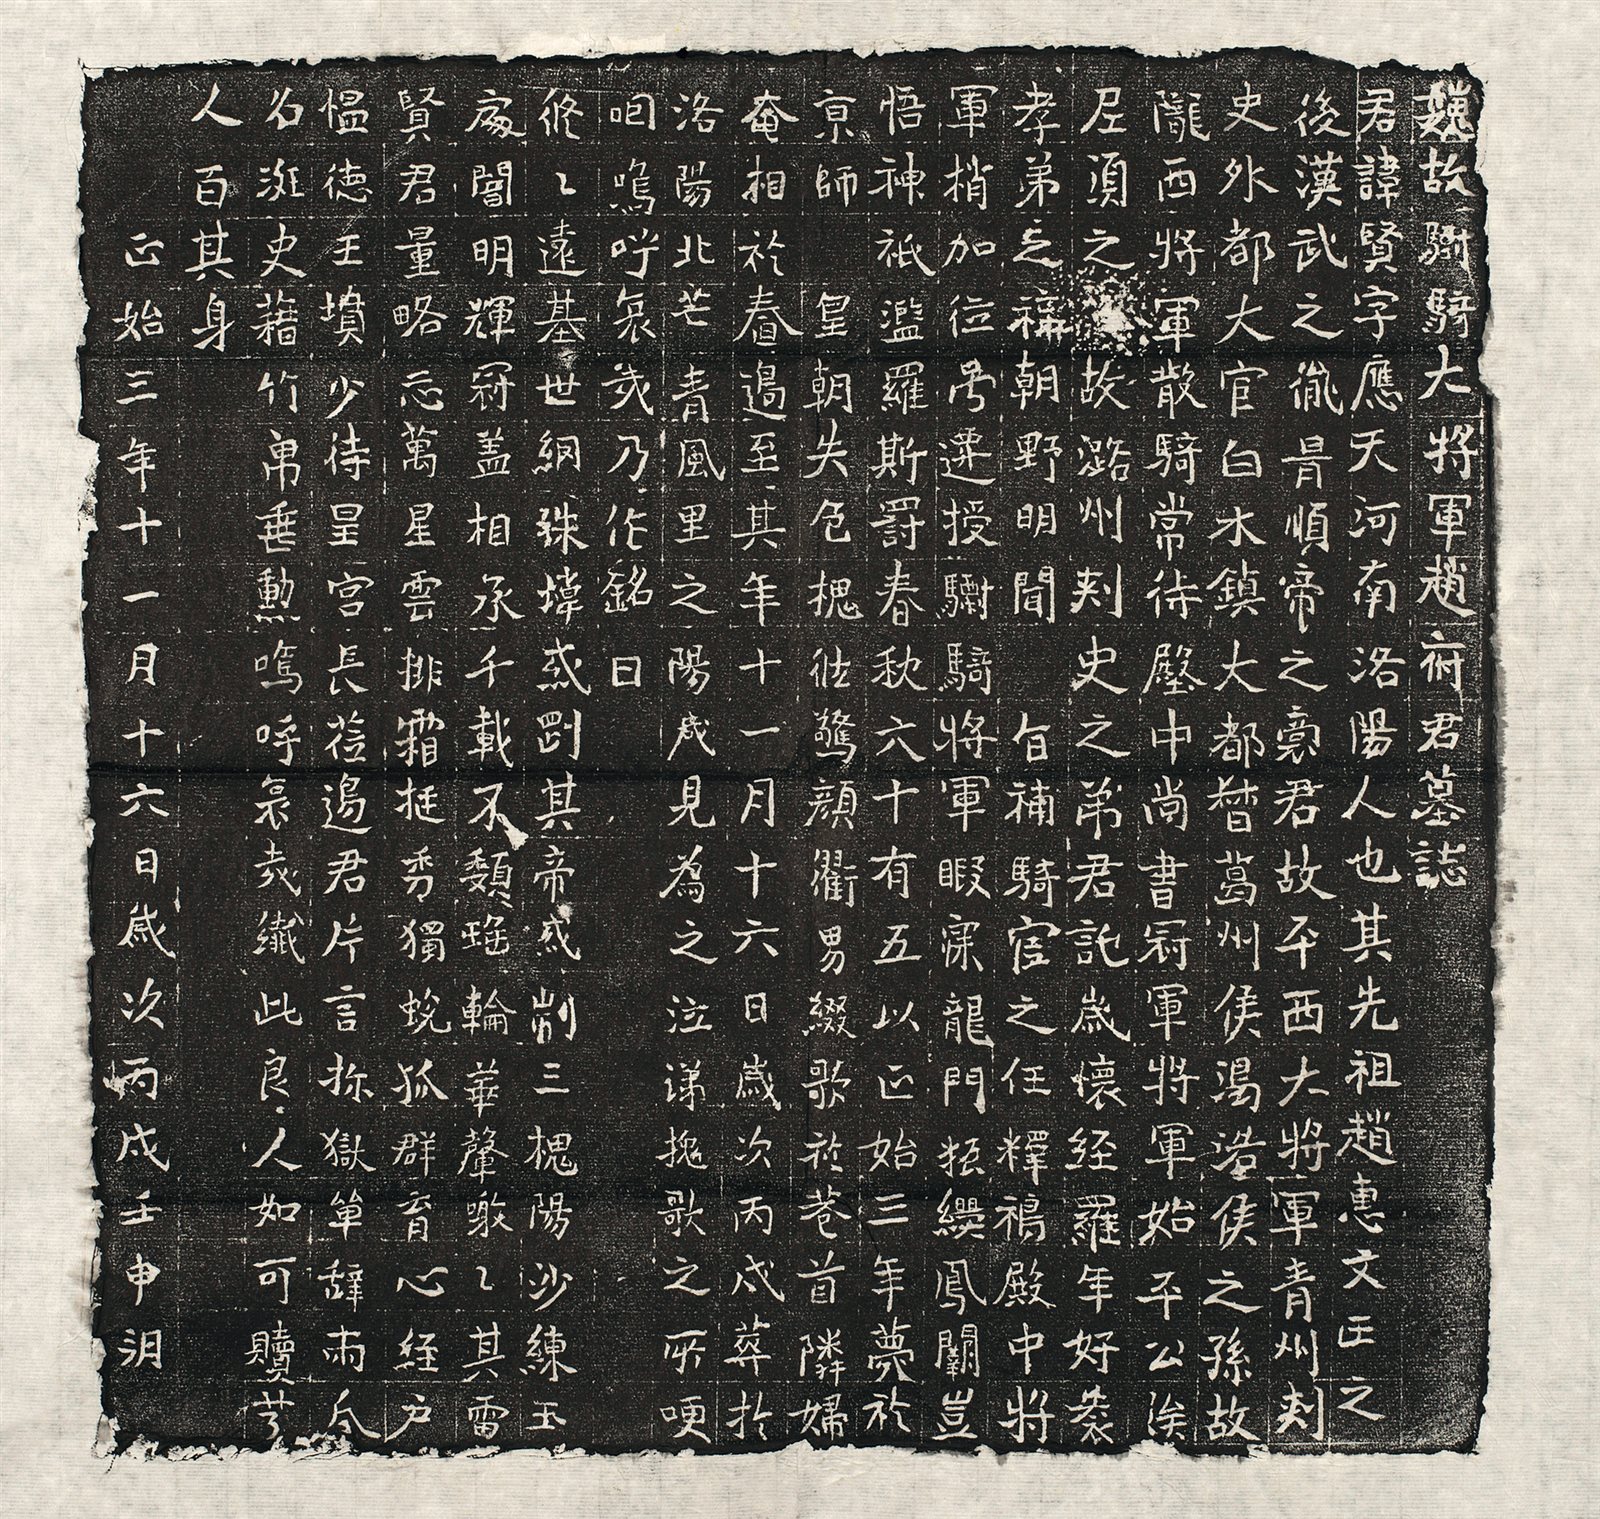 魏故驸騎大将軍趙府君墓誌
君諱賢字應天河南洛陽人也其先祖趙惠文王之
後漢武之胤胥順帝之裔君故平西大将軍青州刾
史外都大官白水鎮大都督葛州侯渴浩侯之孫故
隴西将軍散騎常侍殿中尚書冠軍将軍始平公侯
层須之故潞州刾史之弟君託歲懷経羅年好裘
孝弟之稱朝野明聞旨補騎官之任釋褐殿中将
軍梢加位号遷授驸騎将軍暇寐龍門振纓鳳闕豈
悟神祇濫羅斯罸春秋六十有五以正始三年薨於
京師皇朝失色槐徃驚顔衢男綴歌於巷首隣婦
奄相於舂過至其年十一月十六日歲次丙戍葬扵
洛陽北芒青風里之陽歲見為之泣涕挽歌之所哽
咽嗚呼哀㢤乃作銘曰
悠〻遠基世綱殊㙔或剴其帝或剬三槐陽沙練玉
處闇明輝冠盖相承千載不頹瑤輪華聲噭〻其雷
賢君量略忘萬星雲排霜挺秀獨蛻孤群育心経户
愠德王墳少待皇宮長莅邉君片言㧑獄單辞雨夭
名涎史藉竹帛垂勲嗚呼哀㢤纎此良人如可贖兮
人百其身
正始三年十一月十六日歲次丙戍壬申朔